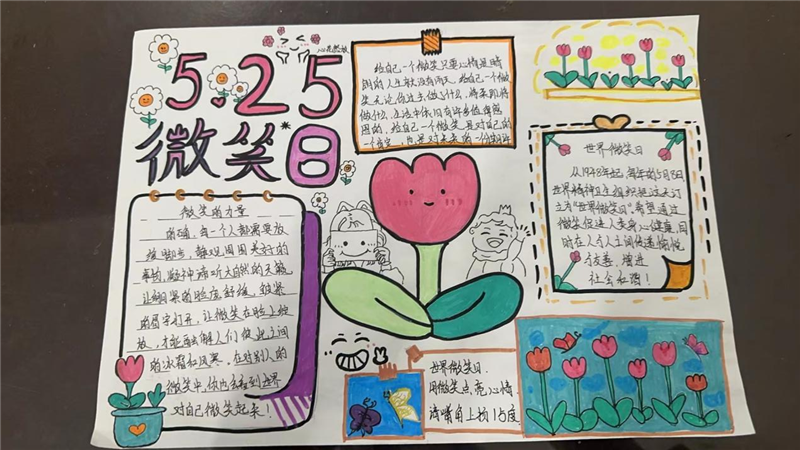 5.25
微笑日
给自己一个微笑只要心情是晴
朗的人生就没有雨天。给自己一个微
笑无论你过去做了什么,将来即将
做什么,生活中依旧有许多值得感
恩的,给自己一个微笑是对自己的
一个肯定,也是对未来的一份期许
微笑的力量
的确,每一个人都需要放
慢脚步,静观周围美好的
事物,凝神谛听大自然的天籁
让绷紧的脸庞舒缓,皱紧
的眉宇打开,让微笑在脸上绽
放,才能融解人们彼此之间
的冰霜和风寒。在对别人的
微笑中,你也会看到世界
对自己微笑起来!
世界微笑日
从1948年起,每年的5月8日
世界精神卫生组织把这天订
立为“世界微笑日”希望通过
微笑促进人类身心健康,同
时在人与人之间传递愉悦
与友善,增进
社会和谐!
世界微笑日.
用微笑点亮心情.
请嘴角上扬15度